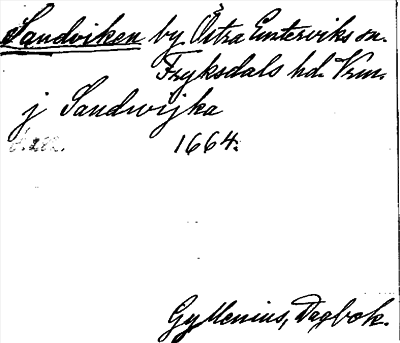 Sandviken by, Östra Emterviks sn.
Fryksdals hd. Vrm.
j Sandwijka
1664.
Gyllenius, Dagbok.